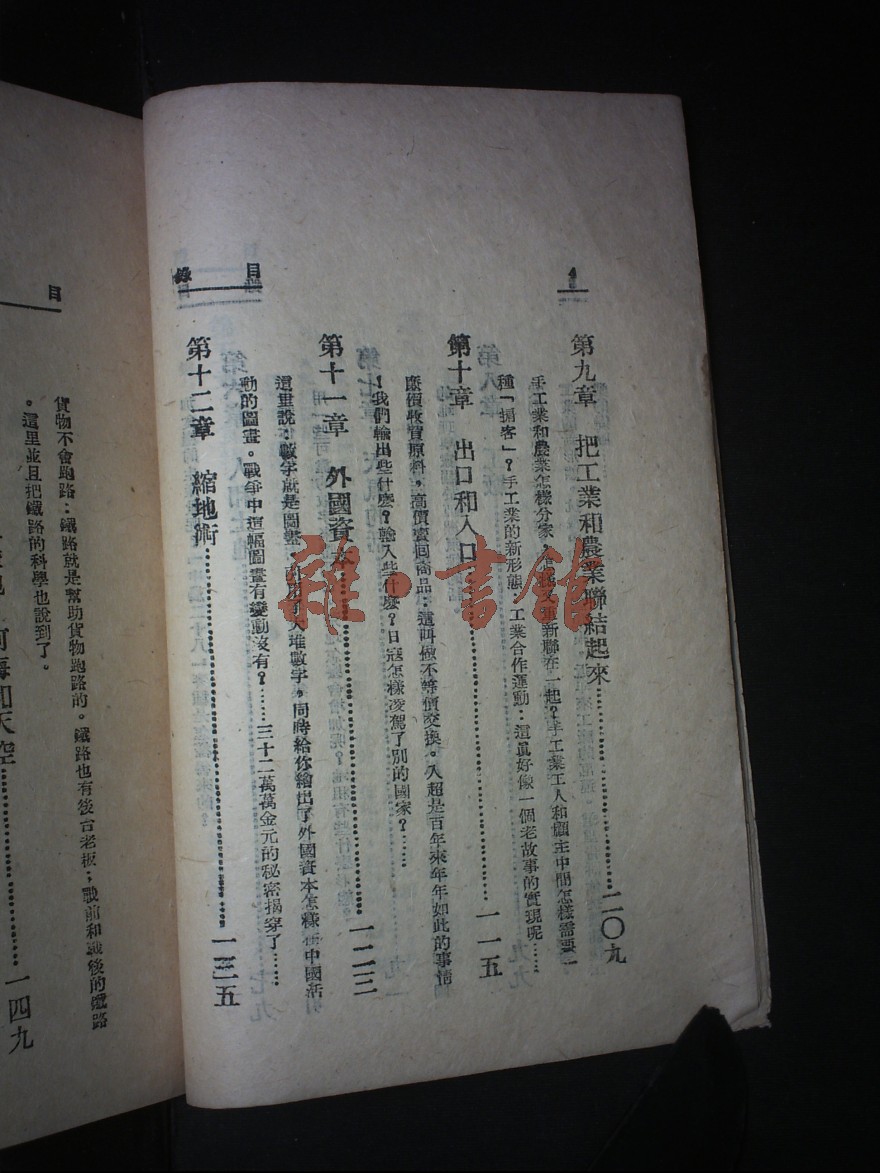 4
目 錄
第九章 把工業和農業聯結起來…………二〇九
手工業和農業怎樣分家，又重新聯在一起？手工業工人和顧主中間怎樣需要一
種「掮客」？手工業的新形態：工業合作運動：這真好像一個老故事的實現呢……
第十章 出口和入口…………一一五
廉價收買原料，高價賣回商品：這叫做不等價交換。入超是百年來年年如此的事情
！我們輸出些什麼？輸入些什麼？日寇怎樣凌駕了別的國家？……
第十一章 外國資本…………一二三
這里說：數字就是圖畫，大堆數字，同時給你繪出了外國資本怎樣在中國活
動的圖畫。戰爭中這幅圖畫有變動沒有？……三十二萬萬金元的秘密揭穿了……
第十二章 縮地術…………一三五
目
貨物不會跑路：鐵路就是幫助貨物跑路的。鐵路也有後台老板；戰前和戰後的鐵路
。這里並且把鐵路的科學也說到了。
河海和天空…………一四九
雜·書館